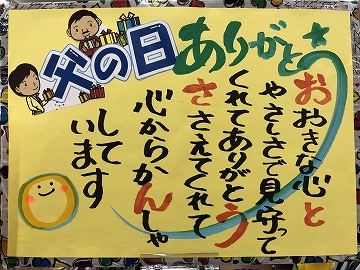 父の日
ありがと
おおきな心と
やさしさで見守って
くれてありがとう
ささえてくれて
心からかんしゃ
して
います